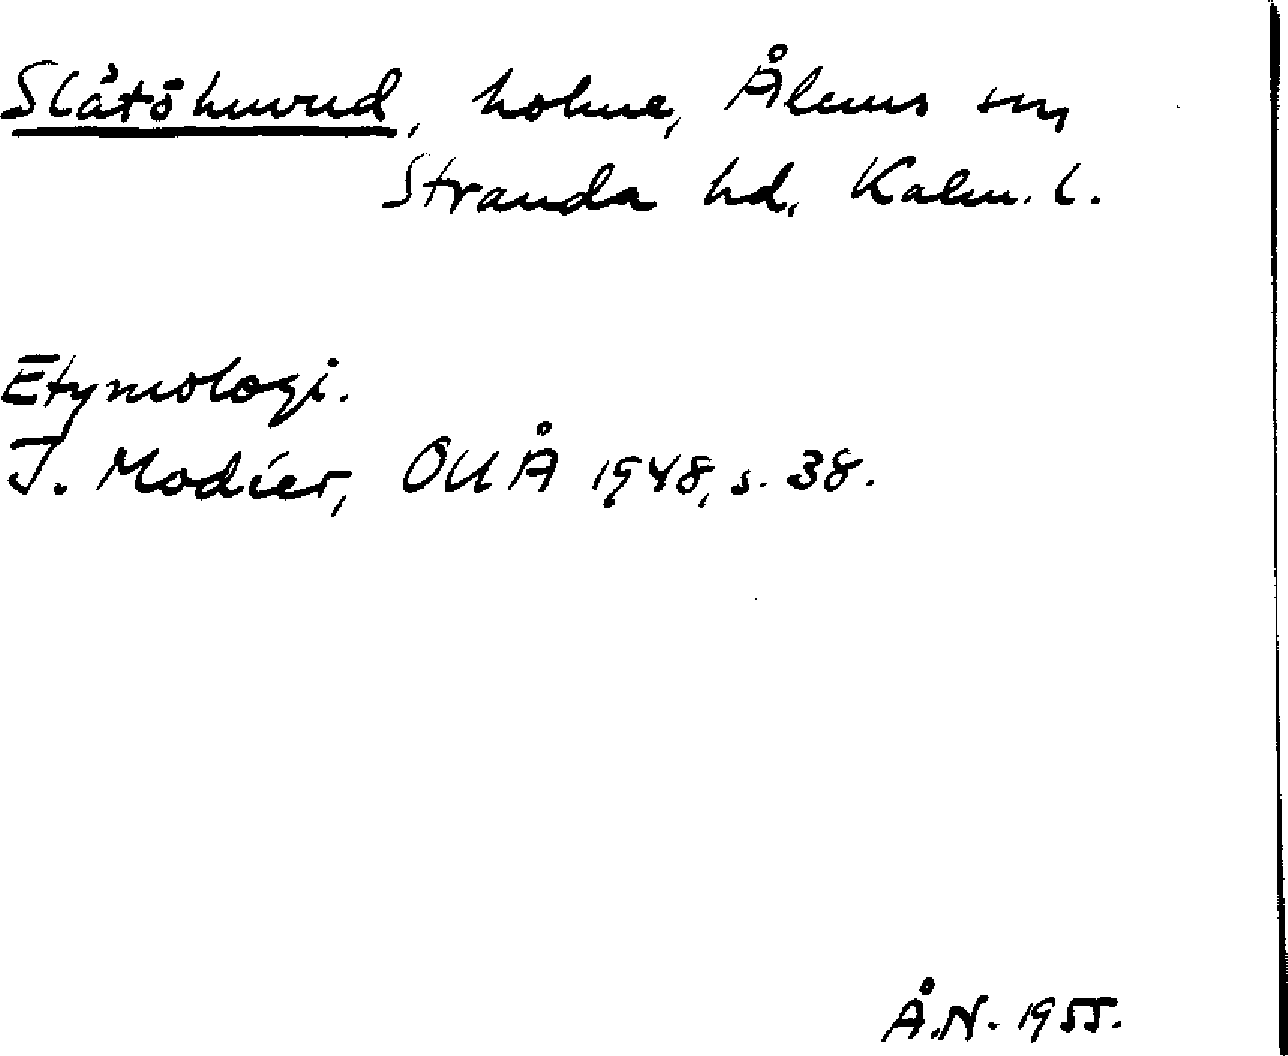 Slåtöhuvud, holme, Ålems sn,
Stranda hd, Kalm. l.
Etymologi.
J. Modéer, OUÅ 1948, s. 38.
Å.N. 1955.